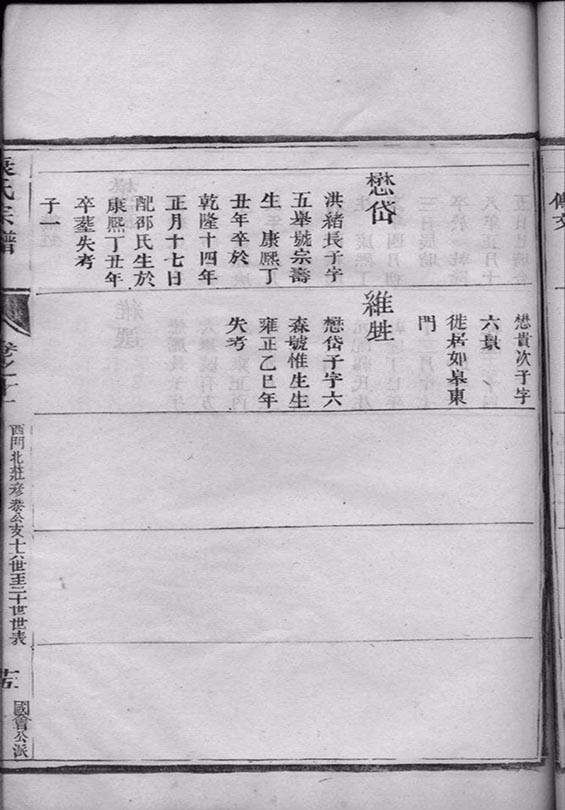 懋岱
洪緒長子字
五舉號宗壽
生 康熙丁
丑年卒於
乾隆十四年
正月十七日
配邵氏生於
康熙丁丑年
卒塟失考
子一
懋貴次子字
六景
徙居如皋東
門
維甡
懋岱子字六
森號惟生生
雍正乙巳年
失考
氏宗譜
卷之十
西門北莊彦卷公支十六世至二十世世表
國賓公派